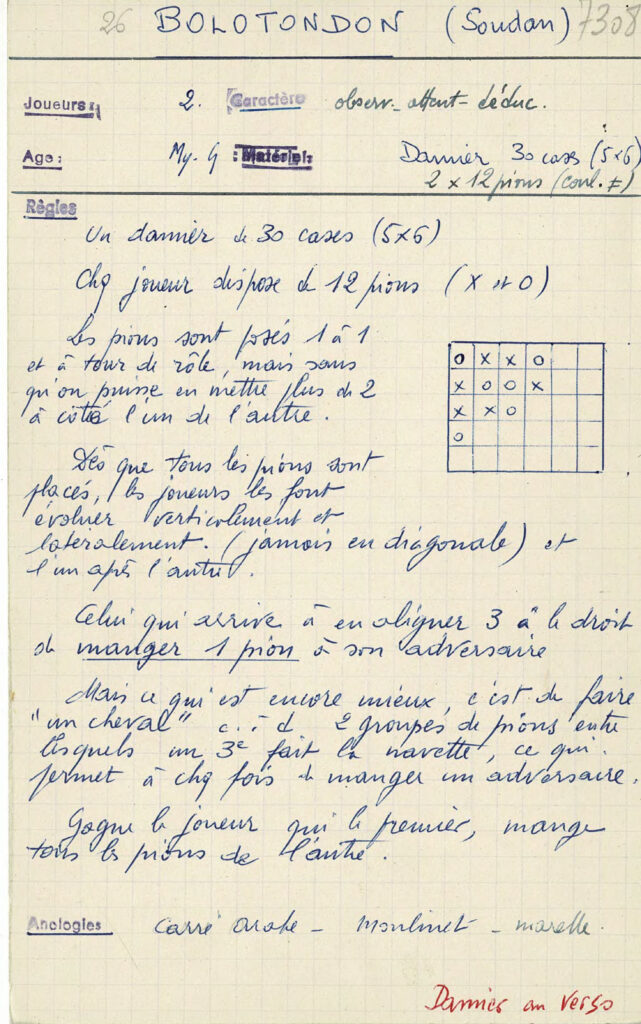 26 BOLOTONDON (Soudan) 7308
Joueurs: 2. Caractère observ_ attent_ déduc.
Age: My. G Matériel: Damier 30 cases (5x6)
2 x 12 pions (coul. ≠)
Règles
Un damier de 30 cases (5x6)
Chq joueur dispose de 12 pions (X et O)
Les pions sont posés 1 à 1
et à tour de rôle, mais sans
qu'on puisse en mettre plus de 2
à côté l'un de l'autre.
O X X O
X O O X
X X O
O
Dès que tous les pions sont
placés, les joueurs les font
évoluer verticalement et
latéralement. (jamais en diagonale) et
l'un après l'autre.
Celui qui arrive à en aligner 3 a le droit
de manger 1 pion à son adversaire
Mais ce qui est encore mieux, c'est de faire
"un cheval" c.à d 2 groupes de pions entre
lesquels un 3e fait la navette, ce qui
permet à chq fois de manger un adversaire.
Gagne le joueur qui le premier, mange
tous les pions de l'autre.
Analogies Carré arabe _ Moulinet _ marelle.
Damier au verso